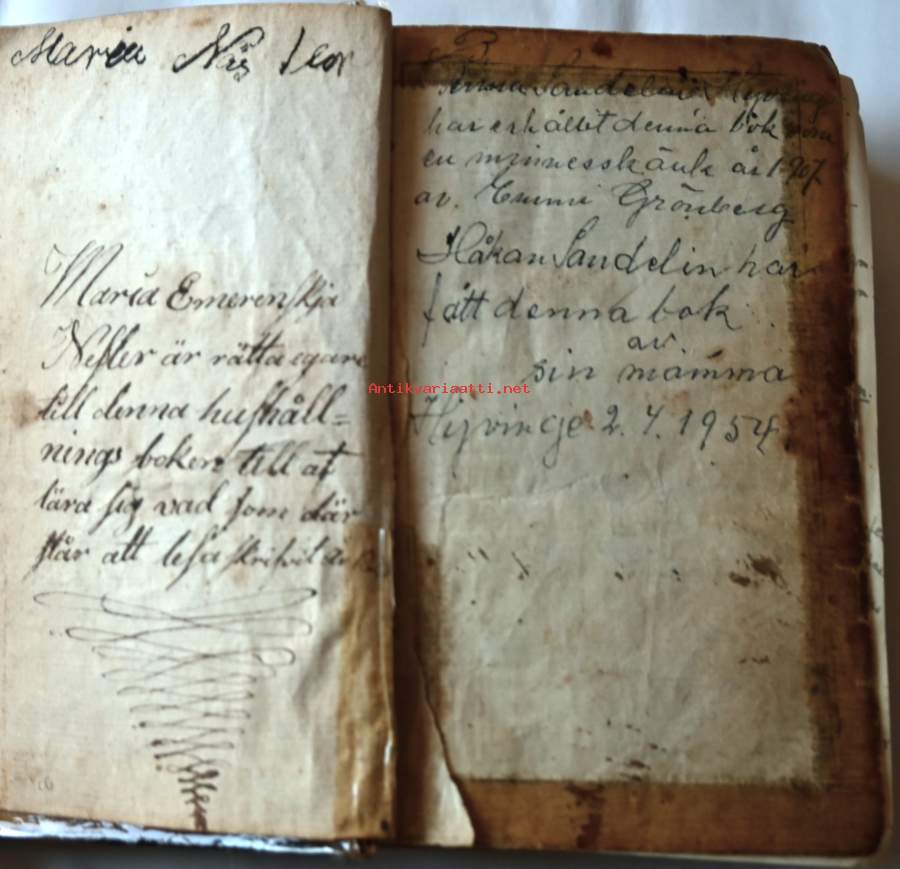 Maria
Maria Emerenskja
Nesler är rätta egare
till denna hushåll=
nings boken till at
lära sig vad som där
står att lesa skrivit
Sandelin Hyvinge
har erhållit denna bok som
en minnesskänk år 1907
av. Emmi Grönberg
Håkan Sandelin har
fått denna bok
av
sin mamma
Hyvinge 2.4.1954
Antikvariaatti.net